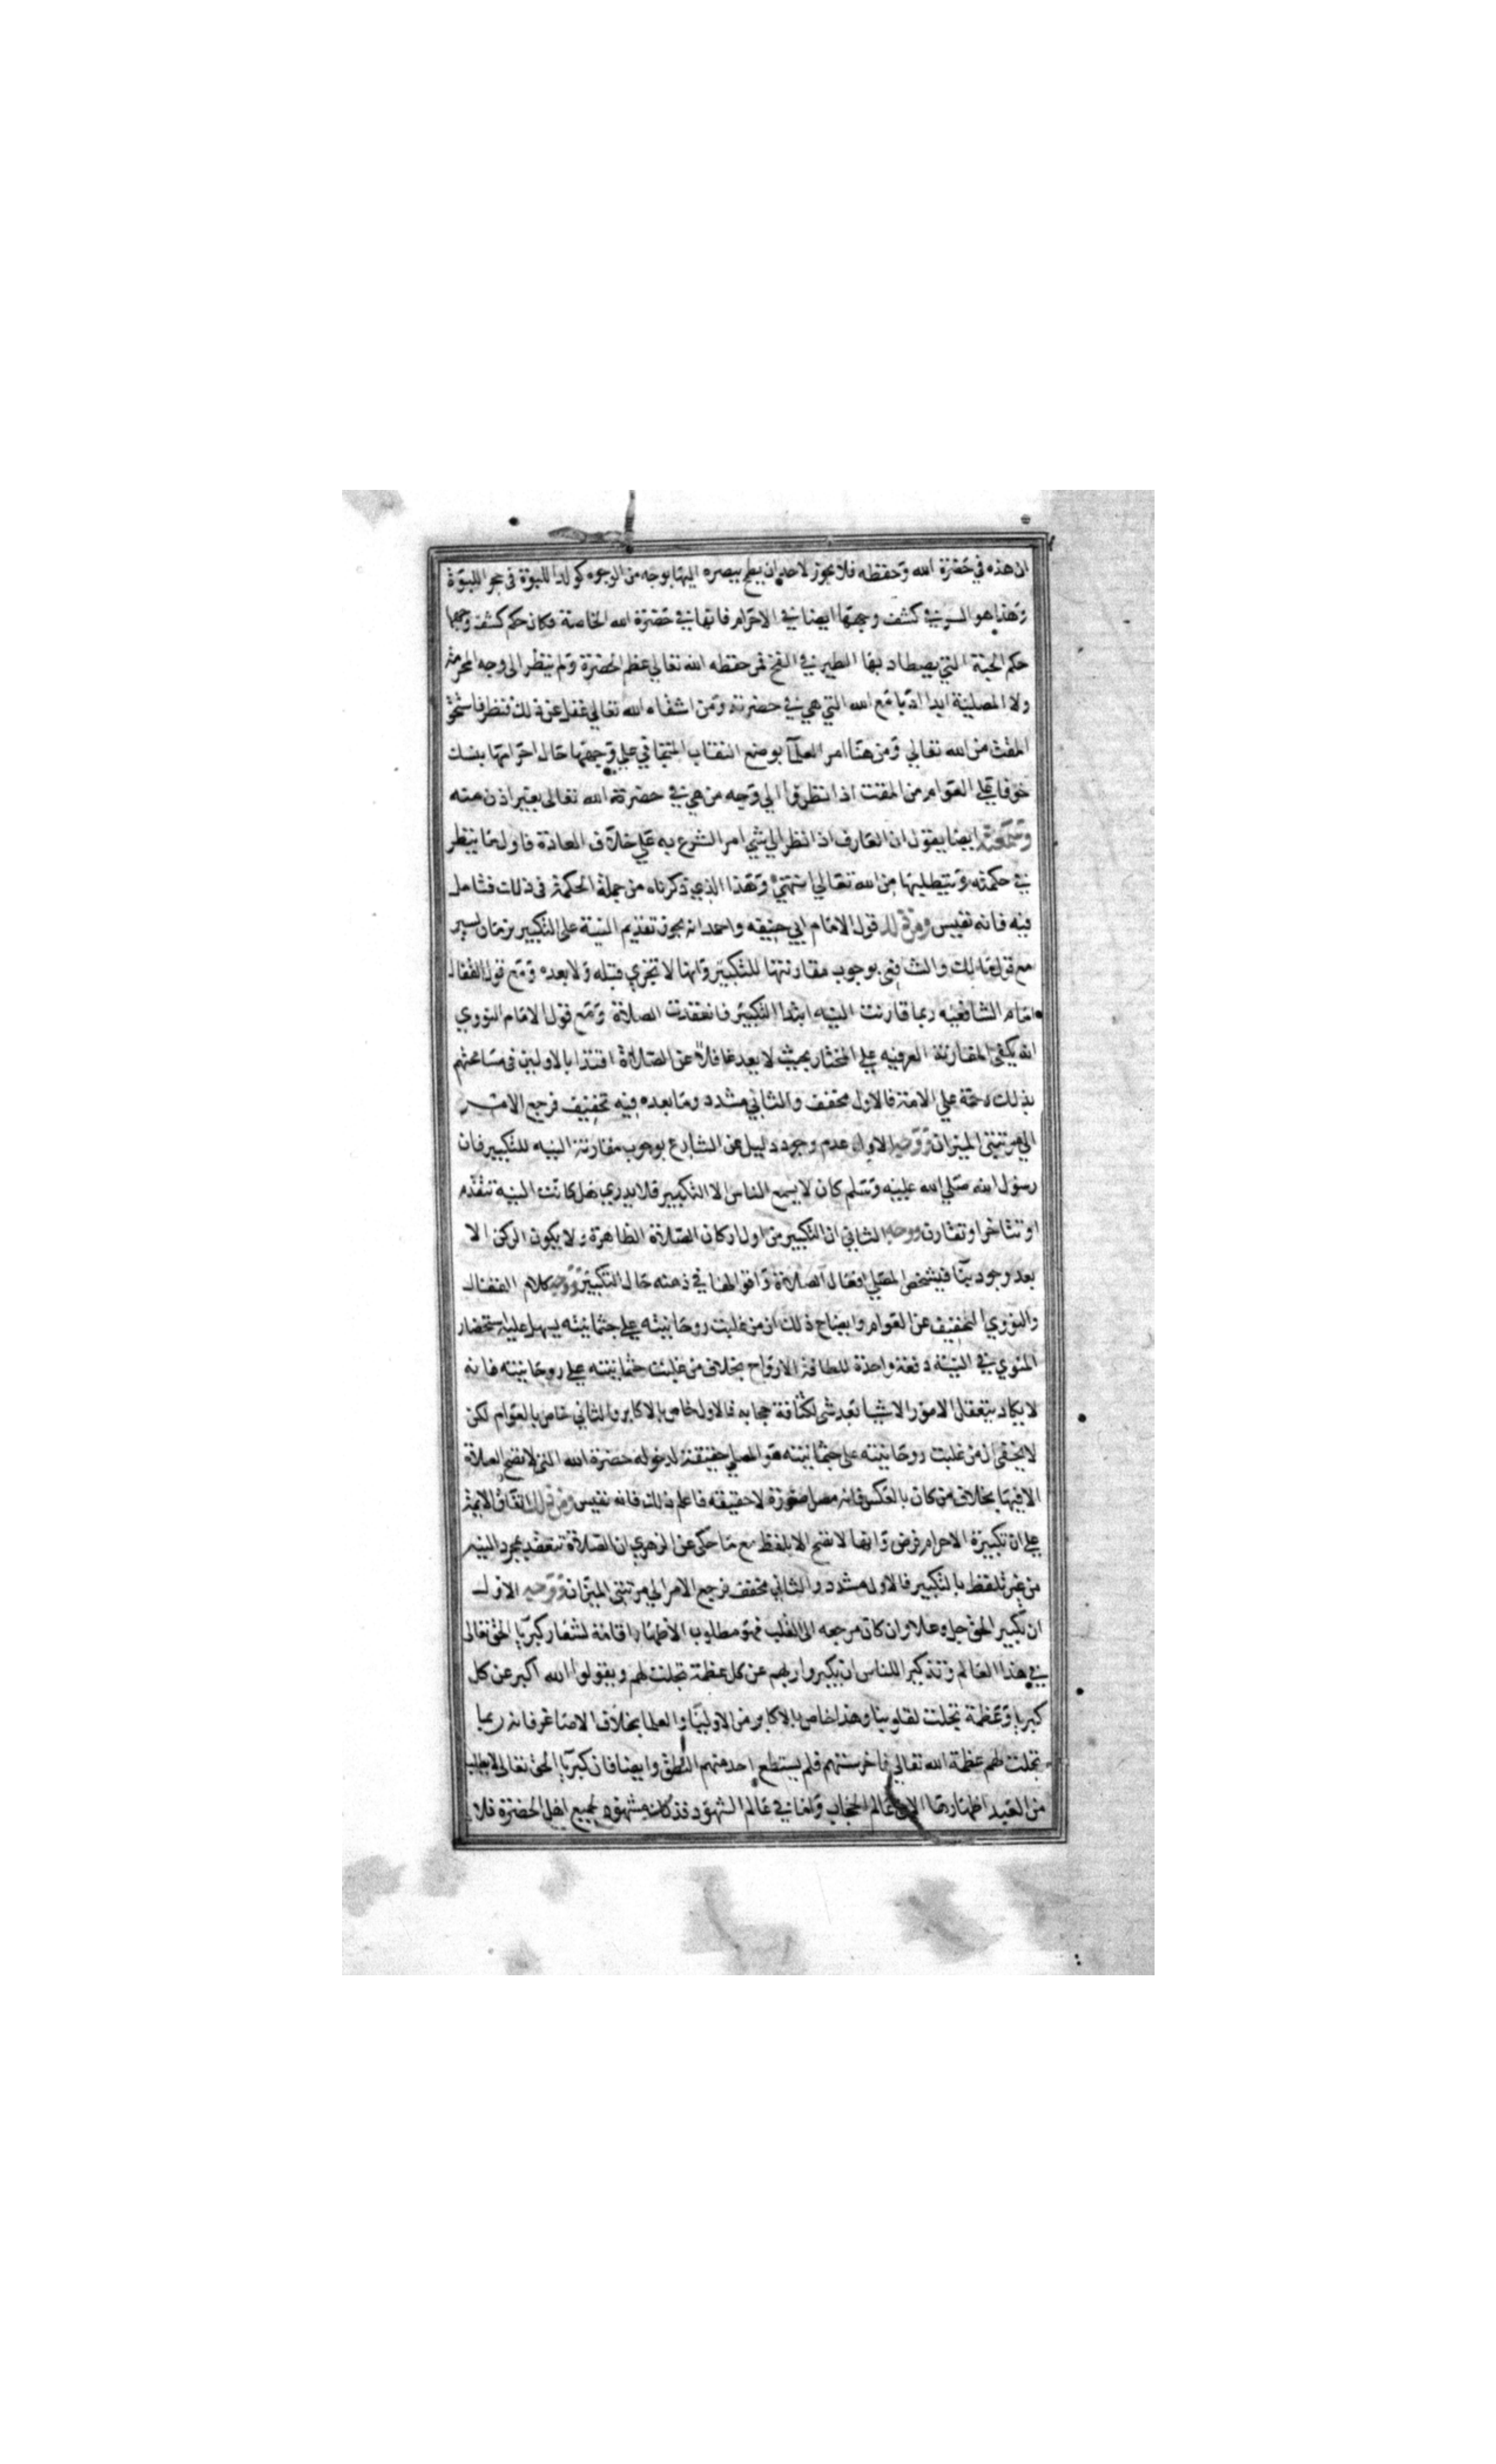 ان هذه في حضرة الله وحفظه فلا يجوز لاحد ان يطمح ببصره اليها بوجه من الوجوه كولد اللبوة في حجر اللبوة
وهذا هو السر في كشف وجهها ايضا في الاحرام فانها في حضرة الله الخاصة فكان حكم كشف وجهها
حكم الحبة التي يصطاد بها الطير في الفخ فمن حفظه الله تعالى عظم الحضرة ولم ينظر الى وجه المحرمة
ولا المصلية ابدا ادبا مع الله التي هي في حضرته ومن اشقاه الله تعالى غفل عن ذلك فنظر فاستحق
المقت من الله تعالى ومن هنا امر العلما بوضع النقاب المتجافي على وجهها حال احرامها بنسك
خوفا على العوام من المقت اذا نظروا الى وجه من هي في حضرة الله تعالى بغير اذن منه
وسمعته ايضا يقول ان العارف اذا نظر الى شي امر الشرع به على خلاف العادة فاول ما ينظر
في حكمته ويتطلبها من الله تعالى انتهى وهذا الذي ذكرناه من جملة الحكمة في ذلك فتامل
فيه فانه نفيس ومن ذلك قول الامام ابي حنيفه واحمد انه يجوز تقديم النية على التكبير بزمان يسير
مع قول مالك والشافعى بوجوب مقارنتها للتكبير وانها لا تجزي قبله ولا بعده ومع قول القفال
امام الشافعيه ربما قارنت النيه ابتدا التكبير فانعقدت الصلاة ومع قول الامام النووي
انه يكفى المقارنة العرفيه على المختار بحيث لا يعد غافلا عن الصلاة اقتدا بالاولين فى مسامحتهم
بذلك رحمة على الامة فالاول مخفف والثاني مشدد وما بعده فيه تخفيف فرجع الامر
الى مرتبتى الميزان ووجه الاول عدم وجود دليل عن الشارع بوجوب مقارنة النيه للتكبير فان
رسول الله صلى الله عليه وسلم كان لا يسمع الناس الا التكبير فلا يدرى هل كانت النية تتقدم
او تتاخر او تقارن ووجه الثاني ان التكبير من اول اركان الصلاة الظاهرة ولا يكون الركن الا
بعد وجود نية فيشخص المصلي افعال الصلاة واقوالها في ذهنه حال التكبير ووجه كلام القفال
والنووي التخفيف عن العوام وايضاح ذلك ان من غلبت روحانيته على جثمانيته يسهل عليه استحضار
المنوي في النية دفعة واحدة للطافة الارواح بخلاف من غلبت جثمانيته على روحانيته فانه
لا يكاد يتعقل الامور الا شيا بعد شى لكثافة حجابه فالاول خاص بالاكابر والثاني خاص بالعوام لكن
لا يخفى ان من غلبت روحانيته على جثمانيته هو المصلي حقيقة لدخوله حضرة الله التي لا تصح الصلاة
الا فيها بخلاف من كان بالعكس فانه مصل صورة لا حقيقه فاعلم ذلك فانه نفيس ومن ذلك اتفاق الايمة
على ان تكبيرة الاحرام فرض وانها لا تصح الا بلفظ مع ما حكى عن الزهري ان الصلاة تنعقد بمجرد النيه
من غير تلفظ بالتكبير فالاول مشدد والثاني مخفف فرجع الامر الى مرتبتى الميزان ووجه الاول
ان تكبير الحق جل وعلا وان كان مرجعه الى القلب فهو مطلوب الاظهار اقامة لشعار كبريا الحق تعالى
في هذا العالم وتذكيرا للناس ان يكبروا ربهم عن كل عظمة تجلت لهم ويقولوا الله اكبر عن كل
كبريا وعظمة تجلت لقلوبنا وهذا خاص بالاكابر من الاوليا والعلما بخلاف الاصاغر فانه ربما
تجلت لهم عظمة الله تعالى فاخرستهم فلم يستطع احد منهم النطق وايضا فان كبريا الحق تعالى لا يطلب
من العبد اظهارها الا في عالم الحجاب واما في عالم الشهود فذلك مشهود لجميع اهل الحضرة فلا